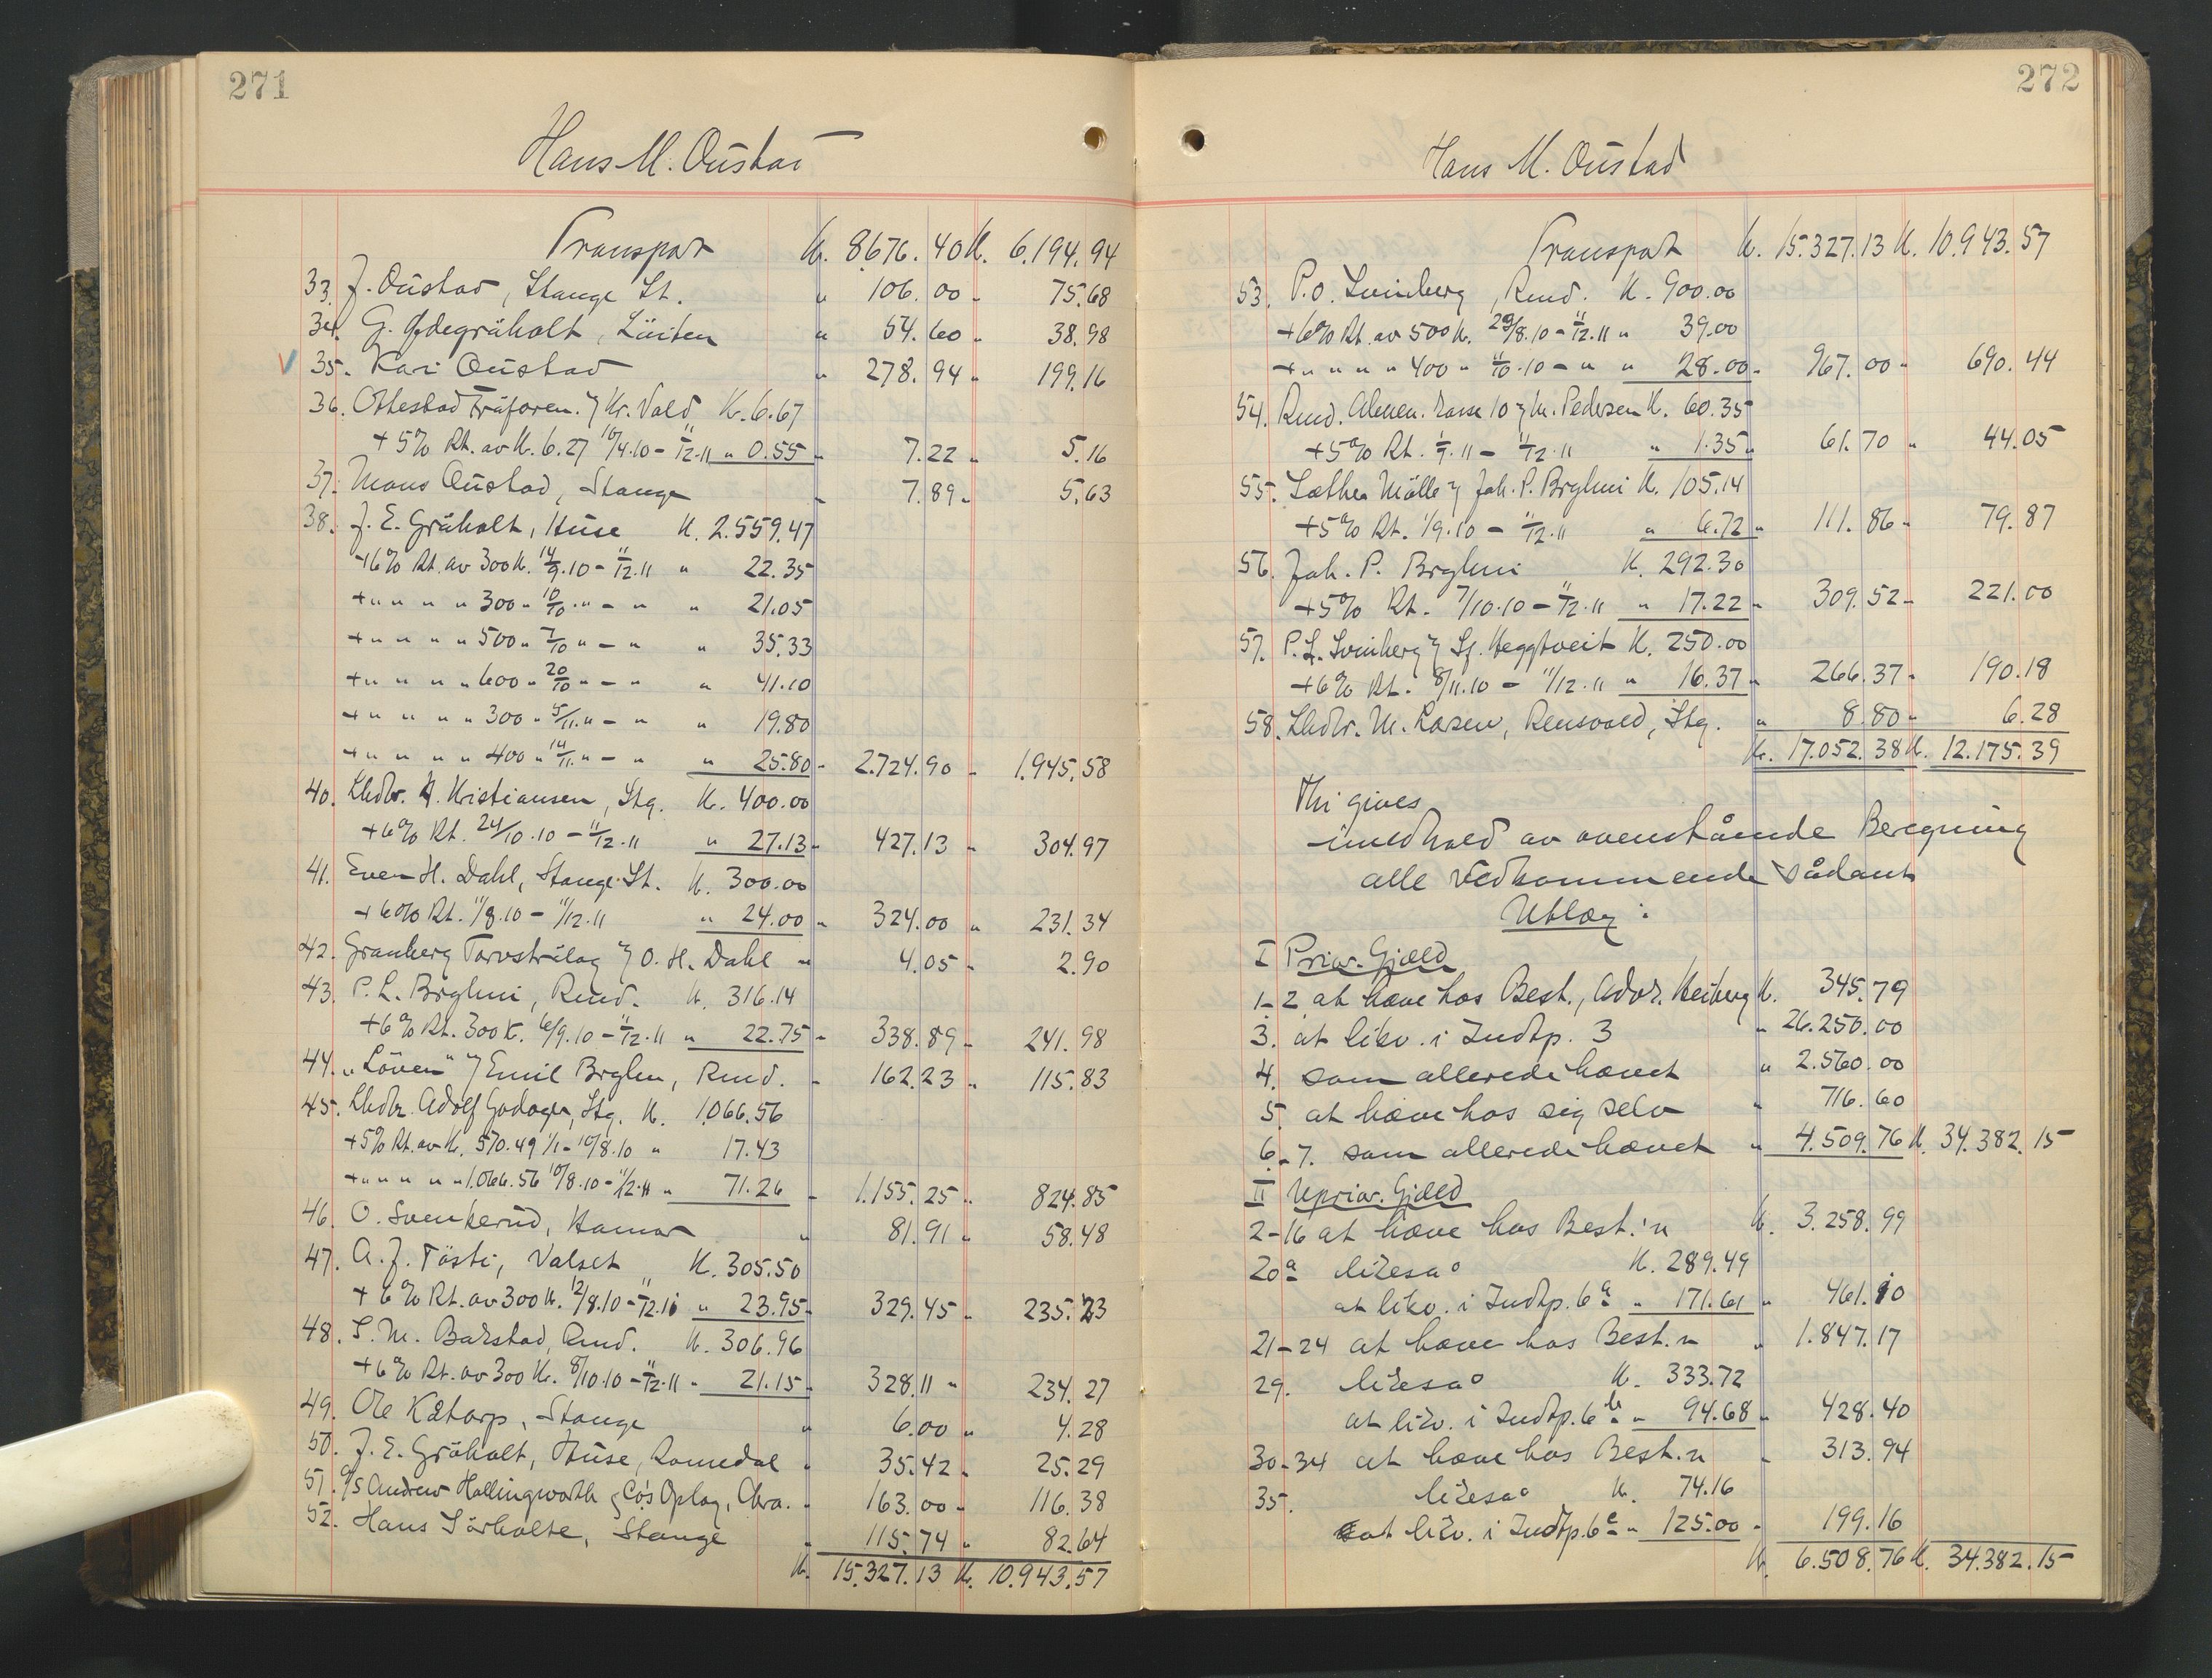 271
Hans M. Oustad
Transport K. 8676.40 K. 6.194.94
33. J. Oustad, Stange St. " 106.00 " 75.68
34. G. Ødegråholt, Löiten " 54.60 " 38.98
V 35. Kari Oustad " 278.94 " 199.16
36. Ottestad Fråforen. Kr. Vold K. 6.67
+ 5% Rt. av K. 6.27 16/4.10 - 11/12.11 " 0.55 " 7.22 " 5.16
37. Mons Oustad, Stange " 7.89 " 5.63
38. J. E. Gråholt, Huse K. 2.559.47
+6% Rt. av 300 K. 14/9.10 - 11/12.11 " 22.35
+ " " " " 300 " 10/10 . " - " " 21.05
+ " " " " 500 " 7/10 " - " " 35.33
+ " " " " 600 " 20/10 " - " " 41.10
+ " " " " 300 " 5/11. " - " " 19.80
+ " " " " 400 " 14/11. " - " " 25.80 " 2.724.90 " 1.945.58
40. Lhdlr. A. Kristiansen, Stg. K. 400.00
+6% Rt. 24/10.10 - 11/12.11 " 27.13 " 427.13 " 304.97
41. Even H. Dahl, Stange St. K. 300.00
+6% Rt. 11/8.10 - 11/12.11 " 24.00 " 324.00 " 231.34
42. Granberg Torvströlag O. H. Dahl " 4.05 " 2.90
43. P. L. Bryhni, Rmd. K. 316.14
+6% Rt. 300 K. 6/9.10 - 11/12.11 " 22.75 " 338.89 " 241.98
44. "Löven" Emil Bryhn, Rmd. " 162.23 " 115.83
45. Lhdlr. Adolf Godager, Stg. K. 1.066.56
+5% Rt. av K. 570.49 1/1 - 10/8.10 " 17.43
+ " " " " 1.066.56 10/8.10 - 11/12.11 " 71.26 " 1.155.25 " 824.85
46. O. Svenkerud, Hamar " 81.91 " 58.48
47. A. J. Tösti, Valset K. 305.50
+ 6% Rt. av 300 K. 12/8.10 - 11/12.11 " 23.95 " 329.45 " 235.23
48. S. M. Bakstad, Rmd. K. 306.96
+6% Rt. av 300 K. 8/10.10 - 11/12.11 " 21.15 " 328.11 " 234.27
49. Ole Katorp, Stange " 6.00 " 4.28
50. J. E. Gråholt, Huse, Romedal " 35.42 " 25.29
51. A/S Andrew Hollingworth & Co's Oplag, Chra. " 163.00 " 116.38
52. Hans Sörholte, Stange " 115.74 " 82.64
K. 15.327.13 K. 10.943.57
272
Hans M. Oustad
Transport K. 15.327.13 K. 10.943.57
53. P. O. Svinberg, Rmd. K. 900.00
+6% Rt. av 500 K. 23/8.10 - 11/12.11 " 39.00
+ " " " " 400 " 11/10.10 - " " 28.00 " 967.00 " 690.44
54. Rmd. Almen. kasse 10 M. Pedersen K. 60.35
+5% Rt. 1/7.11 - 11/12.11 " 1.35 " 61.70 " 44.05
55. Sæther Mölle Joh. P. Bryhni K. 105.14
+5% Rt. 1/9.10 - 11/12.11 " 6.72 " 111.86 " 79.87
56. Joh. P. Bryhni K. 292.30
+5% Rt. 7/10.10 - 11/12.11 " 17.22 " 309.52 " 221.00
57. P. L. Svinberg Sf. Heggtveit K. 250.00
+6% Rt. 8/11.10 - 11/12.11 " 16.37 " 266.37 " 190.18
58. Lhdlr. M. Larsen, Rensvold, Stg. " 8.80 " 6.28
K. 17.052.38 K. 12.175.39
Thi gives
i medhold av ovenstående Beregning
alle Vedkommende sådant
Utlæg:
I Prior. Gjæld
1-2 at hæve hos Best., Advr. Heiberg K. 345.79
3. at likv. i Indtp. 3 " 26.250.00
4. som allerede hævet " 2.560.00
5. at hæve hos sig selv " 716.60
6-7. som allerede hævet " 4.509.76 K. 34.382.15
II Uprior. Gjæld
2-16 at hæve hos Best.'n K. 3.258.99
20a likesaa K. 289.49
at likv. i Indtp. 6a " 171.61 " 461.10
21-24 at hæve hos Best.n " 1.847.17
29. likesaa K. 333.72
at likv. i Indtp. 6b " 94.68 " 428.40
30-34 at hæve hos Best.n " 313.94
35. likesaa K. 74.16
at likv. i Indtp. 6c " 125.00 " 199.16
K. 6.508.76 K. 34.382.15